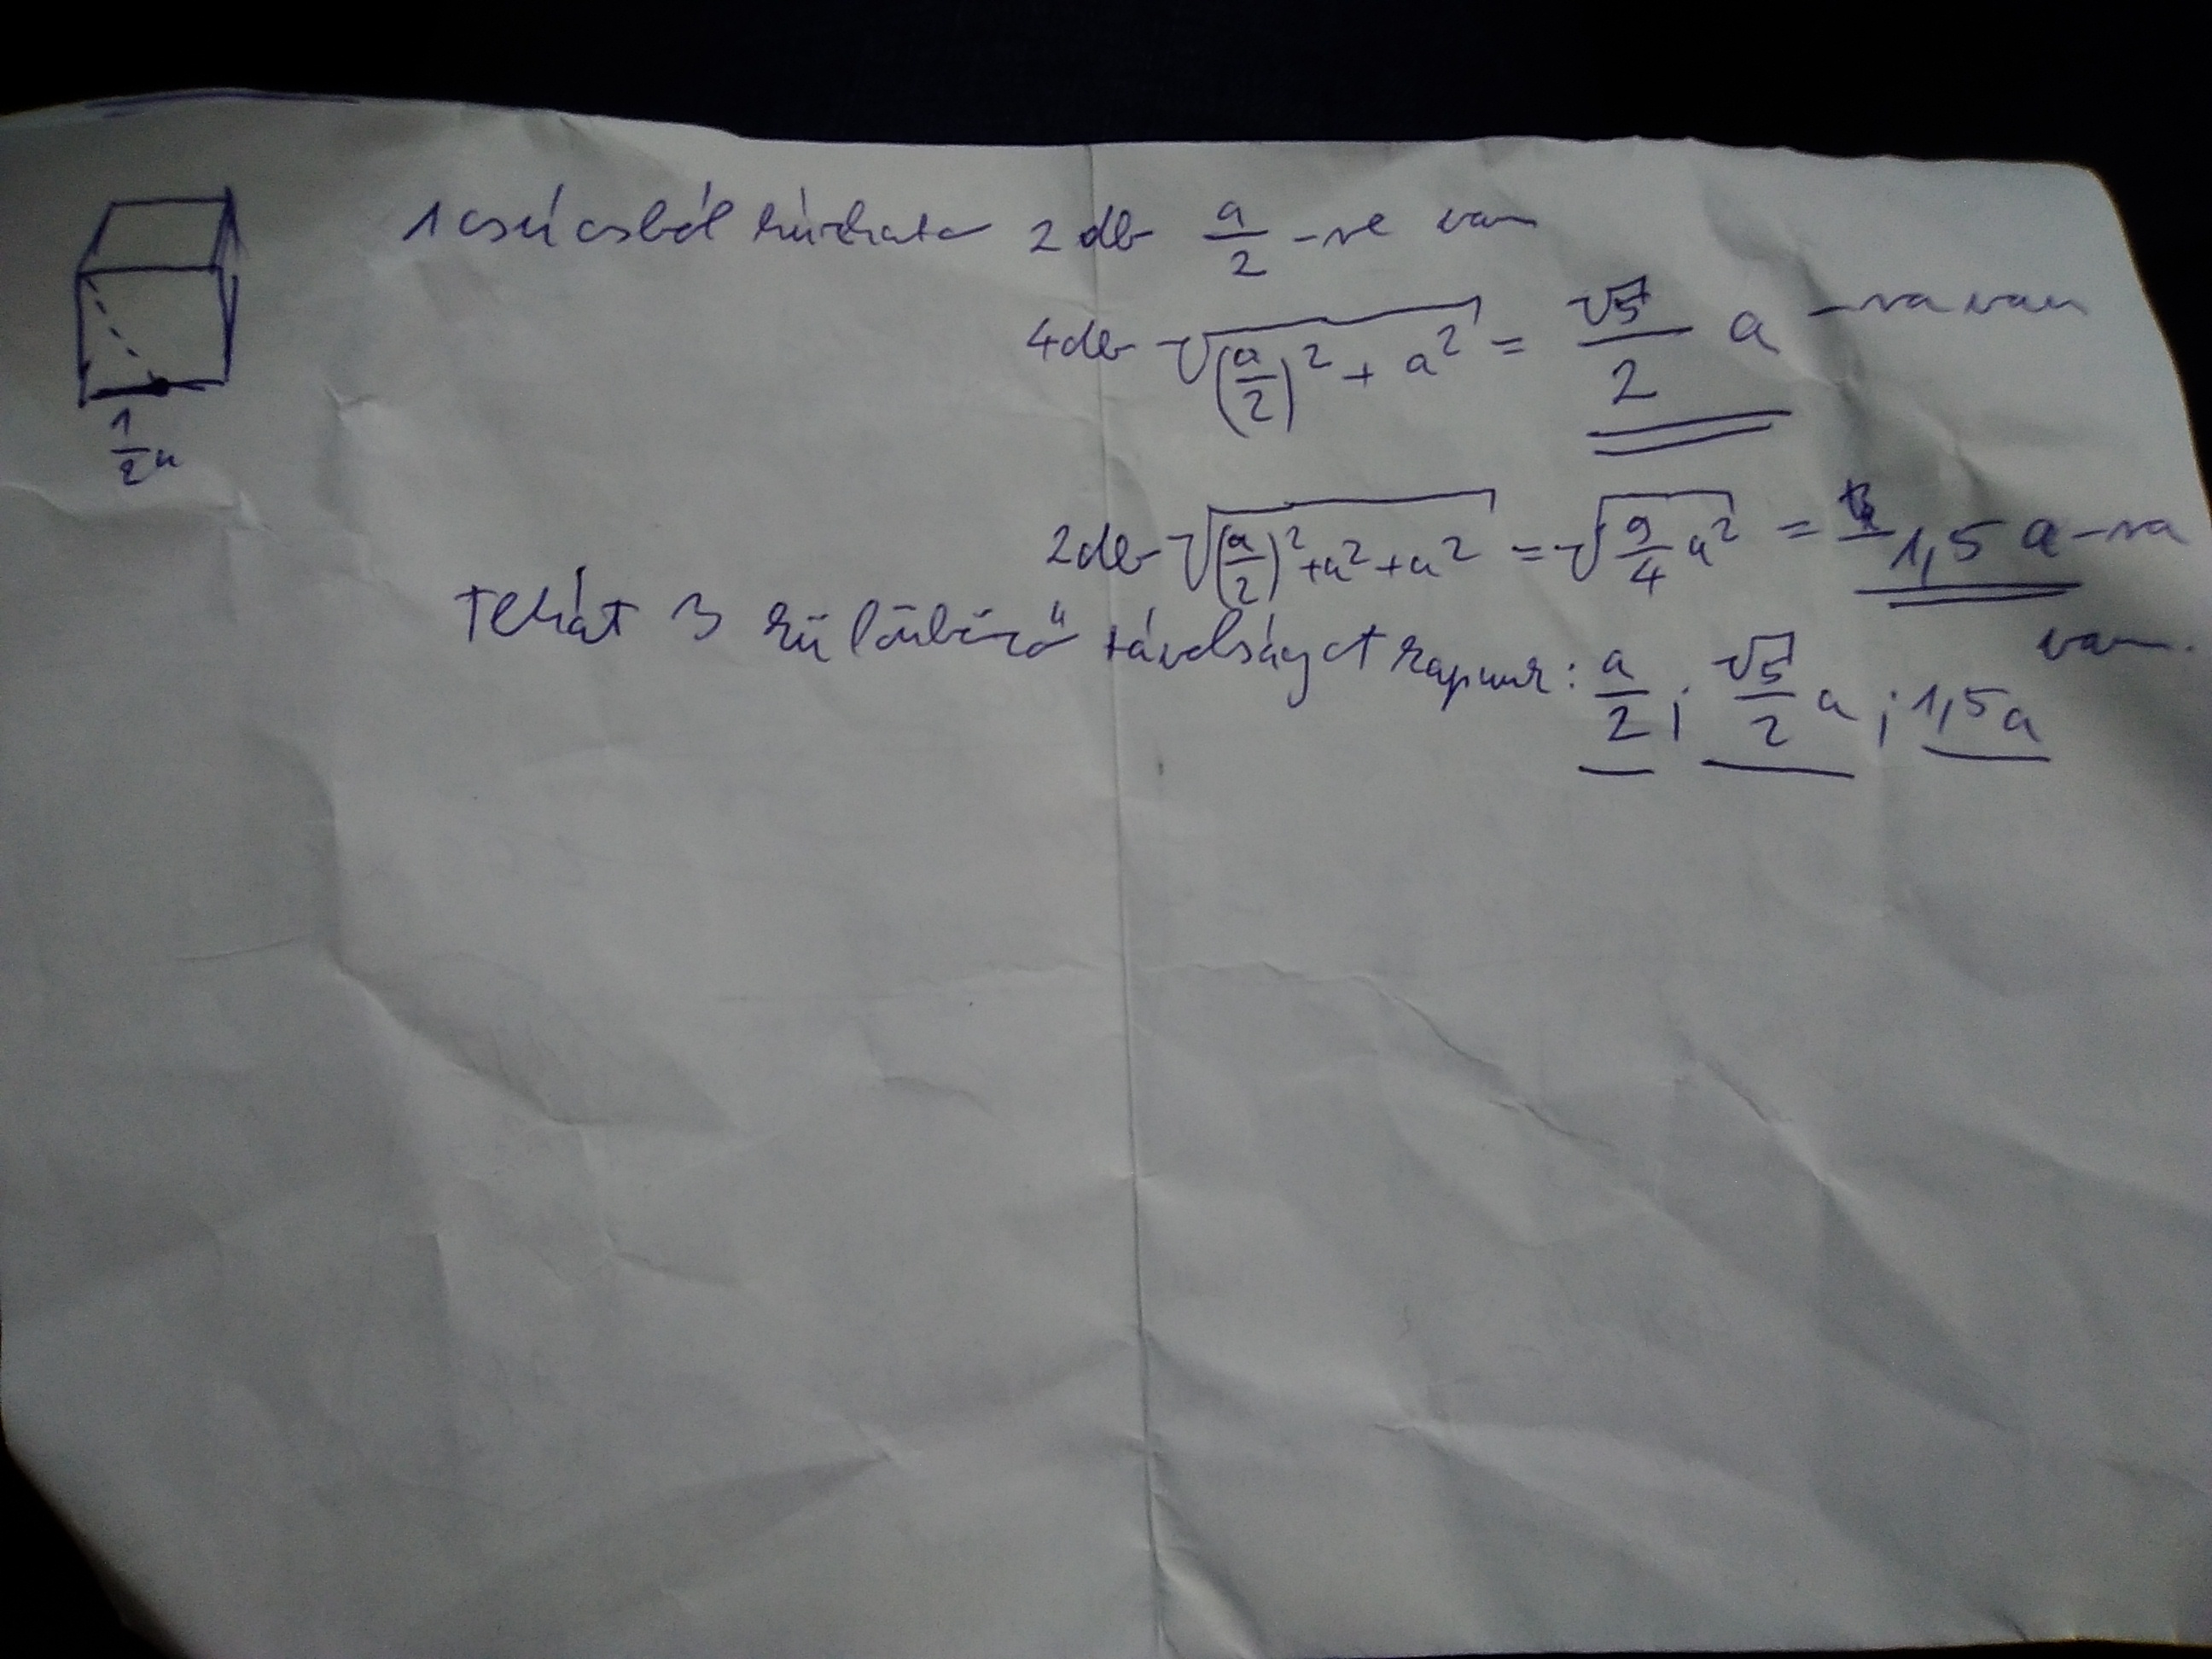 1 csúcsból húzható 2 db a/2 -re van
4 db √((a/2)² + a²) = √5/2 a -ra van
2 db √((a/2)² + a² + a²) = √(9/4 a²) = 1,5 a -ra van.
Tehát 3 különböző távolságot kapunk: a/2 ; √5/2 a ; 1,5a
1/2 a